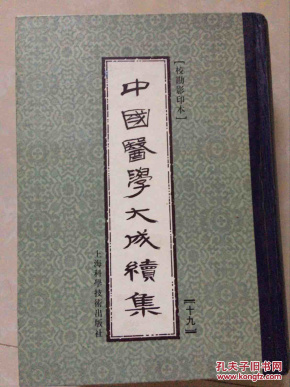 【校勘影印本】
中國醫學大成續集
【十九】
上海科學技術出版社
孔夫子旧书网